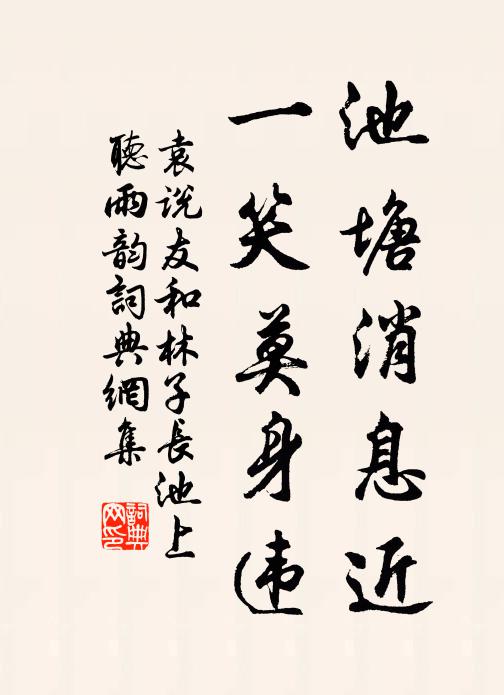 池塘消息近
一笑莫身违
袁说友和林子长池上
聽雨韵詞典網集
詞典网印